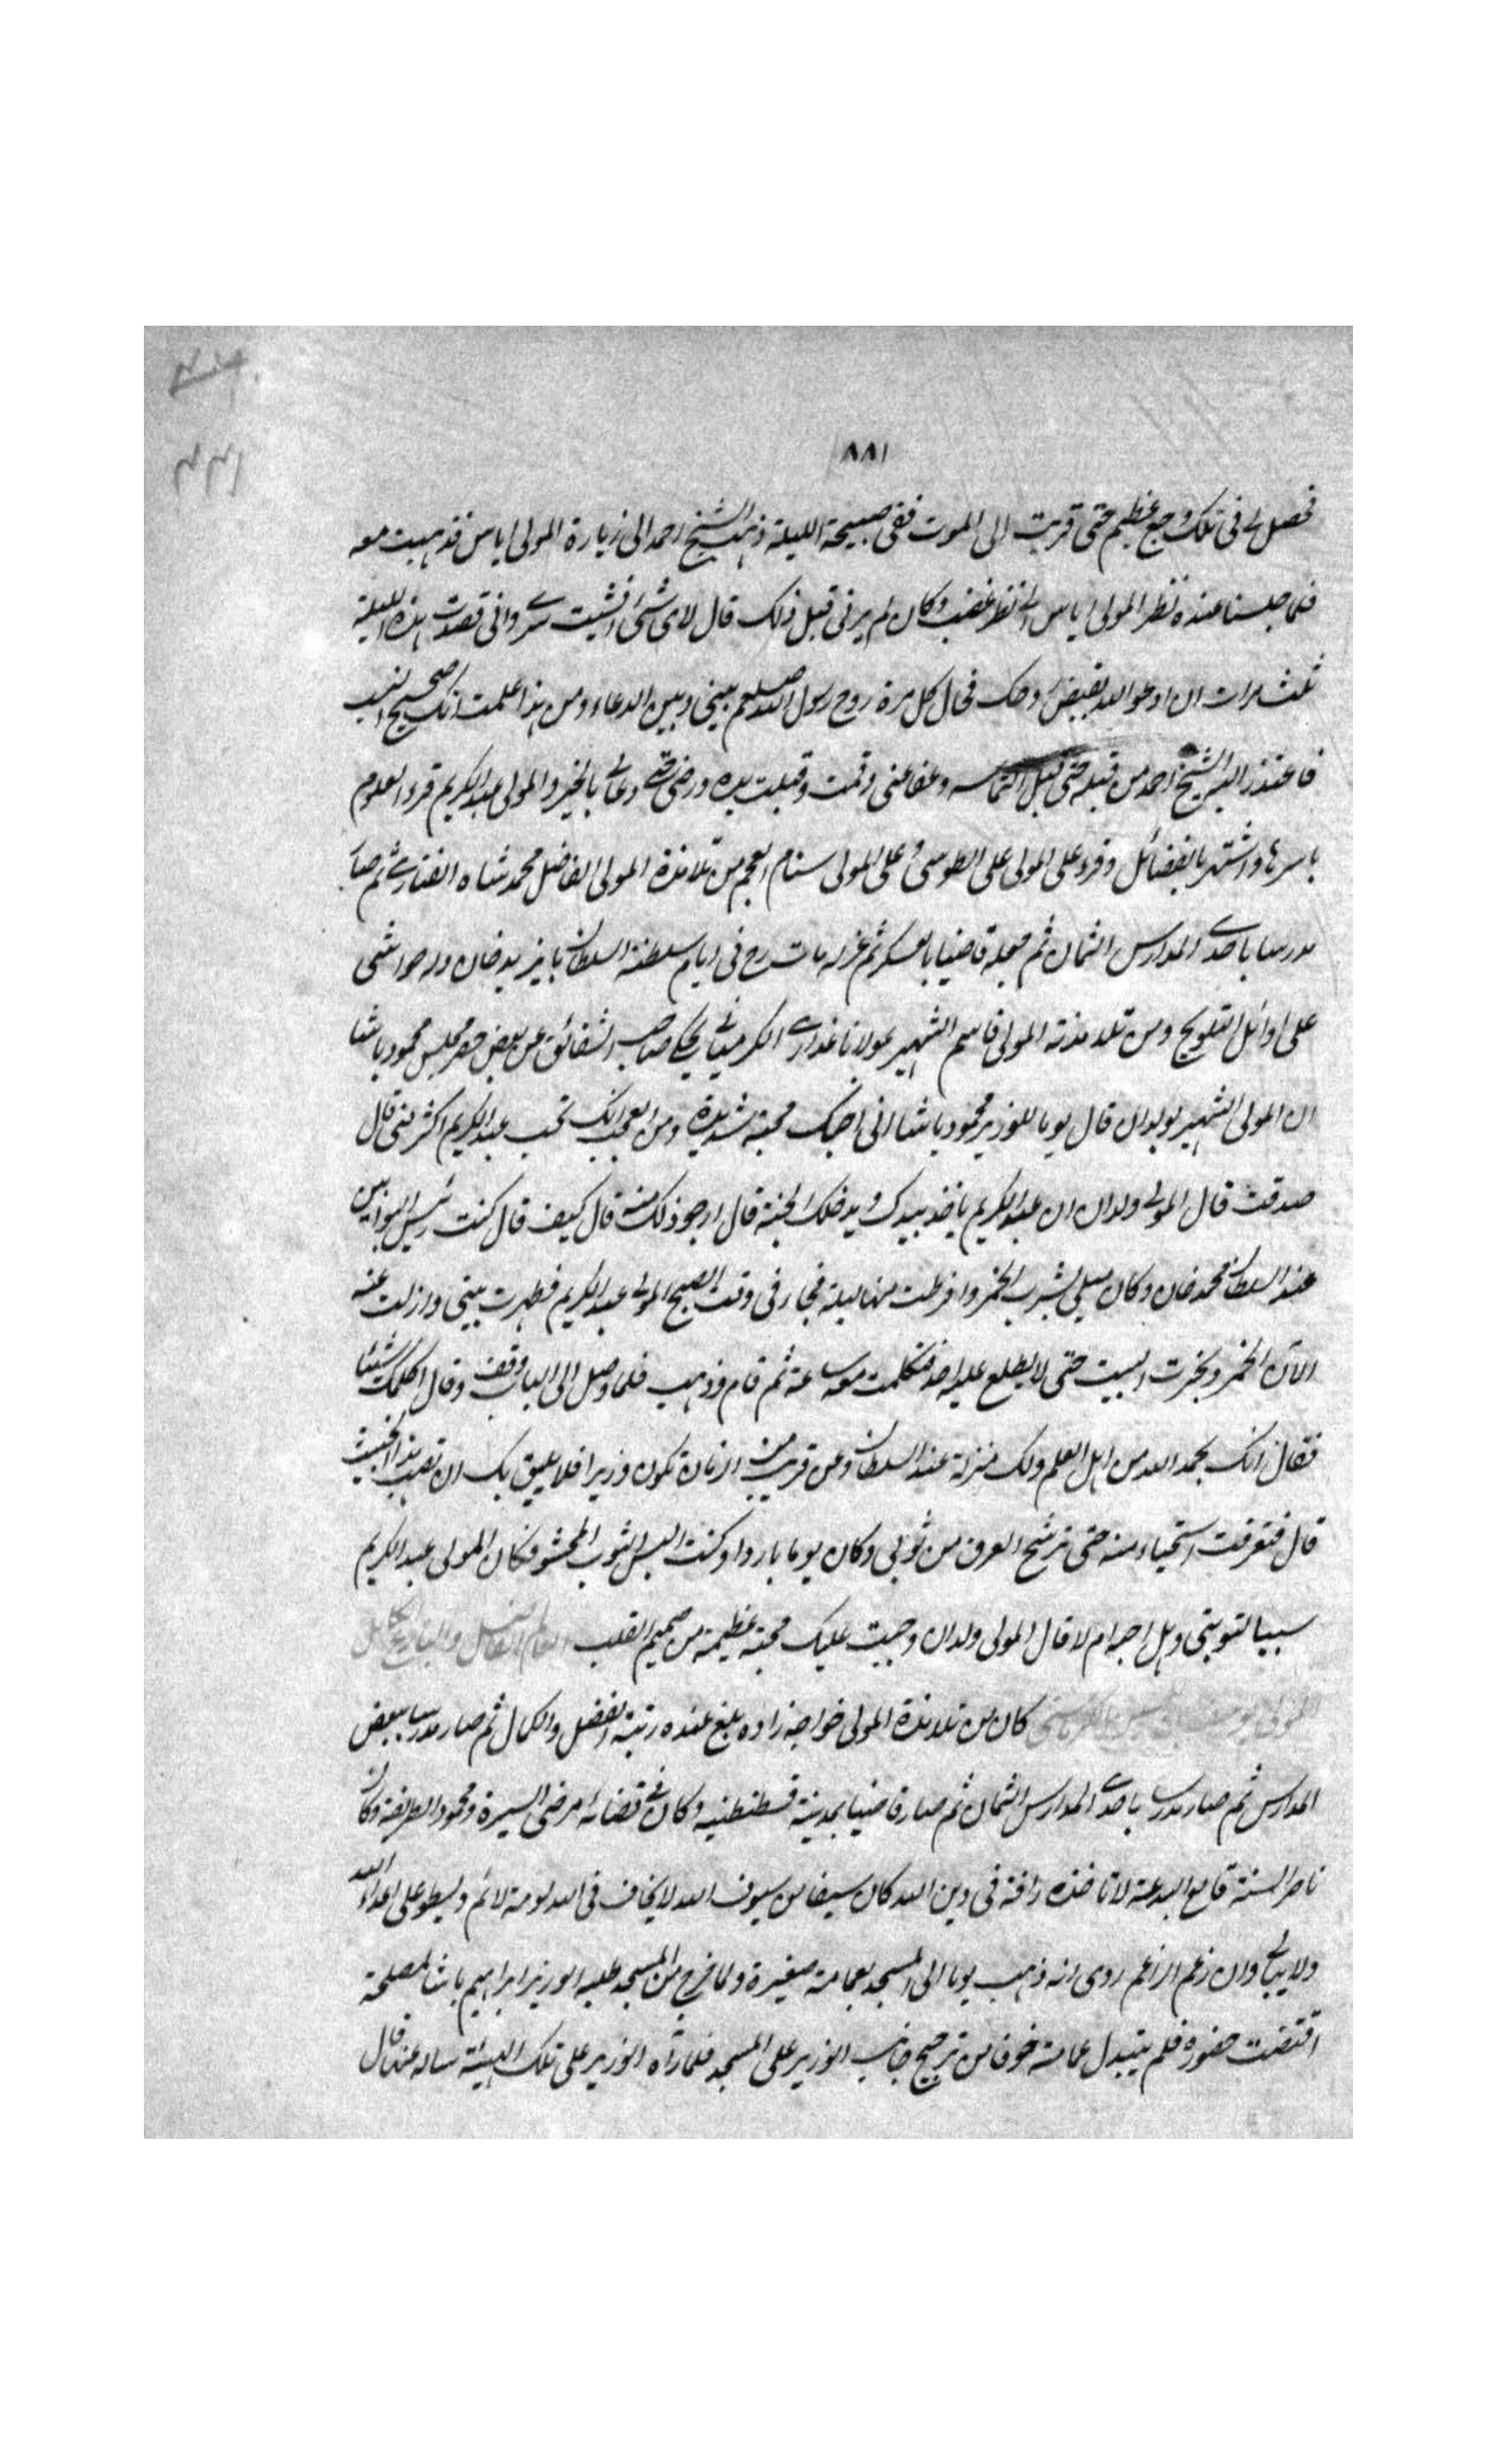 ٨٨١
فحصل لى فى تلك وجع عظيم حتى قربت الى الموت ففى صبيحة الليلة ذهب الشيخ احمد الى زيارة المولى اياس فذهبت معه
فلما جلسنا عنده نظر المولى اياس الى نظر غضب وكان لم يرنى قبل ذلك قال لاى شئ افشيت سرى وانى قصدت هذه الليلة
ثلث مرات ان ادعو الله بقبض روحك فحال كل مرة روح رسول الله صلعم بينى وبين الدعاء ومن هذا علمت انك صحيح النسب
فاعتذر اليه الشيخ احمد من قبله حتى قبل التماسه وعفا عنى وقمت وقبلت يده ورضى عنى ودعا لى بالخير والمولى عبد الكريم قرء العلوم
باسرها واشتهر بالفضائل وقرء على المولى على الطوسى وعلى المولى سنام العجم من تلامذة المولى الفاضل محمد شاه الفنارى ثم صار
مدرسا باحدى المدارس الثمان ثم جعله قاضيا بالعسكر ثم عزله مات رح فى ايام سلطنة السلطان بايزيد خان وله حواشى
على اوائل التلويح ومن تلامذته المولى قاسم الشهير بمولانا عذارى الكرميانى يحكى صاحب الشقائق عن بعض حضر مجلس محمود باشا
ان المولى الشهير بولدان قال يوما للوزير محمود باشا انى احبك محبة شديدة ومن العجب انك تحب عبد الكريم اكثر منى قال
صدقت قال المولى ولدان ان عبد الكريم ياخذ بيدك ويدخلك الجنة قال ارجو ذلك منه قال كيف قال كنت رئيس البوابين
عند السلطان محمد خان وكان ميلى بشرب الخمر وافرطت منها ليلة فجاء فى وقت الصبح المولى عبد الكريم فطهرت بيتى وازلت عنه
الآت الخمر وبخرت البيت حتى لا يطلع عليه احد فتكلمت معه ساعة ثم قام وذهب فلما وصل الى الباب وقف وقال اكلمك شيئا
فقال انك بحمد الله من اهل العلم ولك منزلة عند السلطان وعن قريب من الزمان تكون وزيرا فلا يليق بك ان تصب هذا الخبيث
قال فتعرقت استحياء منه حتى ترشح العرق من ثوبى وكان يوما باردا وكنت البس الثوب المحشو فكان المولى عبد الكريم
سببا لتوبتى وهل احبه ام لا قال المولى ولدان وجبت عليك محبة عظيمة من صميم القلب العالم الفاضل والبارع الكامل
المولى يوسف بن حسين الكرماستى كان من تلامذة المولى خواجه زاده بلغ عنده رتبة الفضل والكمال ثم صار مدرسا ببعض
المدارس ثم صار مدرسا باحدى المدارس الثمان ثم صار قاضيا بمدينة قسطنطنيه وكان فى قضائه مرضى السيرة ومحمود الطريقة وكان
ناصر السنة قامع البدعة لا تاخذه رافة فى دين الله كان سيفا من سيوف الله لا يخاف فى الله لومة لائم ويسطو على اعداء الله
ولا يبالى وان زعم الزاعم روى انه ذهب يوما الى المسجد بعمامة صغيرة ولما خرج من المسجد طلبه الوزير ابراهيم باشا لمصلحة
اقتضت حضوره فلم يتبدل عمامته خوفا من ترجيح جانب الوزير على المسجد فلما رآه الوزير على تلك الهيئة ساله عنه قال